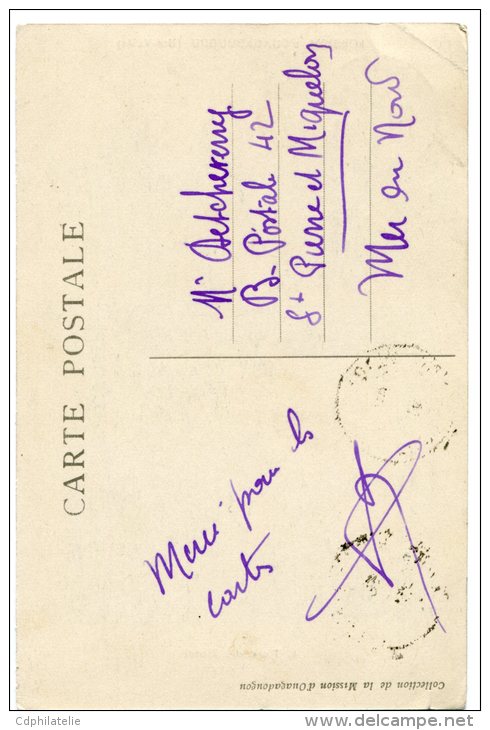 CARTE POSTALE
Mr Detcheverry
B. Postale 42
St Pierre et Miquelon
Mer du Nord
Merci pour les
cartes
Collection de la Mission d'Ouagadougou
Cdphilatelie
www.delcampe.net